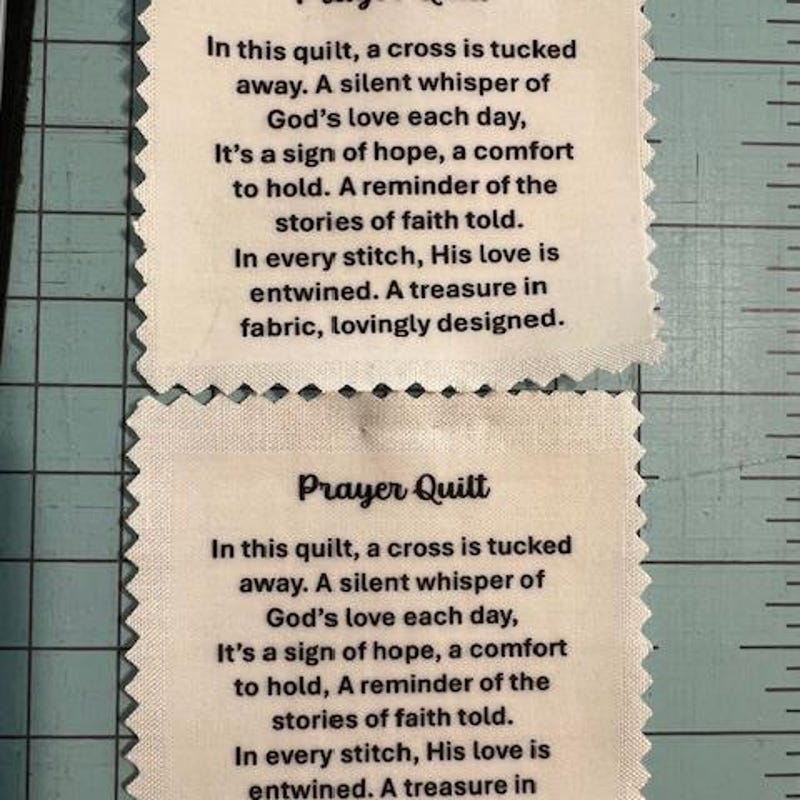 Prayer Quilt
In this quilt, a cross is tucked
away. A silent whisper of
God's love each day,
It's a sign of hope, a comfort
to hold. A reminder of the
stories of faith told.
In every stitch, His love is
entwined. A treasure in
fabric, lovingly designed.
Prayer Quilt
In this quilt, a cross is tucked
away. A silent whisper of
God's love each day,
It's a sign of hope, a comfort
to hold, A reminder of the
stories of faith told.
In every stitch, His love is
entwined. A treasure in